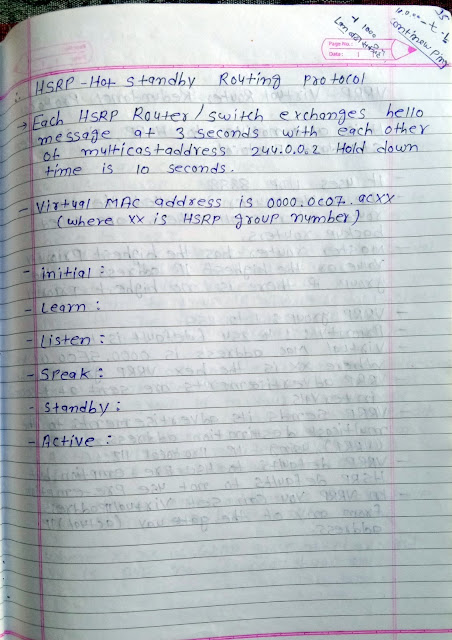 Page No.:
Date:
continew ping
HSRP - Hot standby Routing protocol
→ Each HSRP Router / switch exchanges hello
message at 3 seconds with each other
of multicastaddress 244.0.0.2 Hold down
time is 10 seconds.
- Virtual MAC address is 0000.0c07.acxx
(where xx is HSRP group number)
- initial :
- Learn :
- Listen :
- Speak :
- Standby :
- Active :